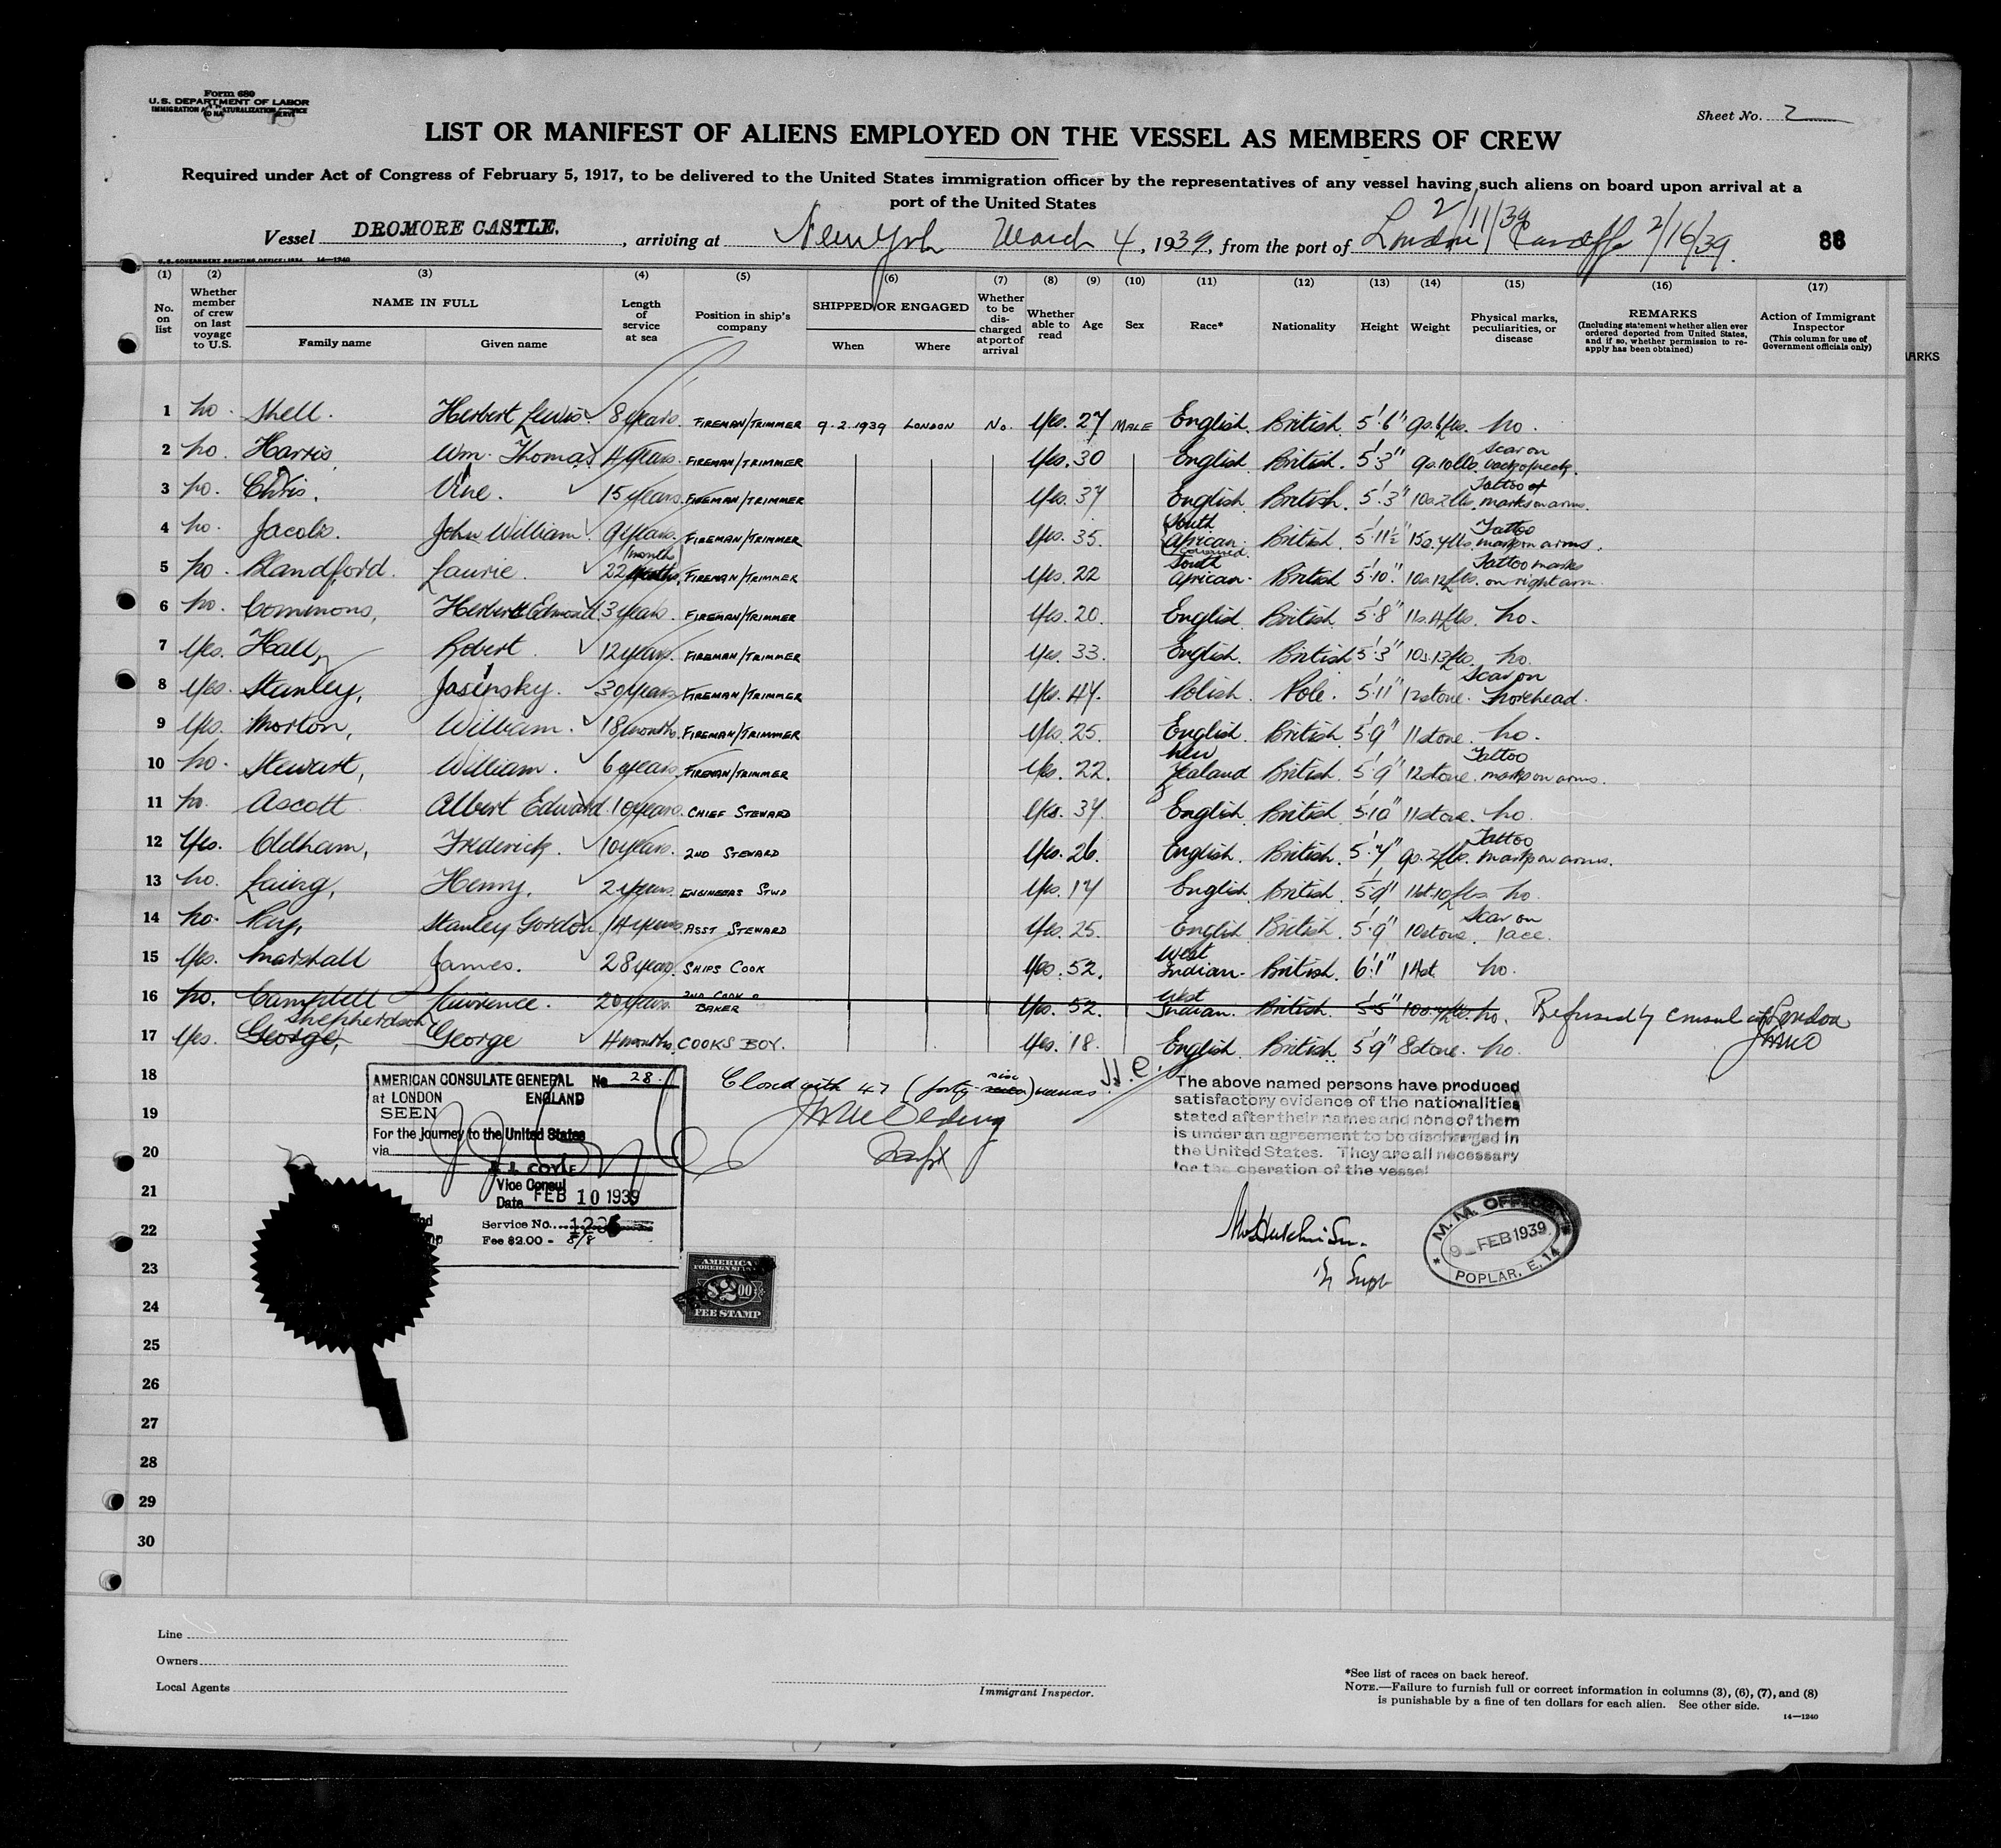 Form 680
U.S. DEPARTMENT OF LABOR
Sheet No. 2
LIST OR MANIFEST OF ALIENS EMPLOYED ON THE VESSEL AS MEMBERS OF CREW
Required under Act of Congress of February 5, 1917, to be delivered to the United States immigration officer by the representatives of any vessel having such aliens on board upon arrival at a
port of the United States
2/11/39
Vessel DROMORE CASTLE., arriving at New York March 4, 1939, from the port of London Cardiff 2/16/39.
(1) (2) (3) (4) (5) (6) (7) (8) (9) (10) (11) (12) (13) (14) (15) (16) (17)
No. on list
Whether member of crew on last voyage to U.S.
NAME IN FULL
Family name
Given name
Length of service at sea
Position in ship's company
SHIPPED OR ENGAGED
When
Where
Whether to be discharged at port of arrival
Whether able to read
Age
Sex
Race*
Nationality
Height
Weight
Physical marks, peculiarities, or disease
REMARKS
(Including statement whether alien ever ordered deported from United States, and if so, whether permission to reapply has been obtained)
Action of Immigrant Inspector
(This column for use of Government officials only)
ARKS
1 No. Shell. Herbert Lewis. 8 years. FIREMAN/TRIMMER 9.2.1939 LONDON No. Yes. 27 MALE English. British. 5'.6" 9s.6lbs. No.
2 No. Harris Wm. Thomas 4 years. FIREMAN/TRIMMER Yes. 30 English. British. 5'3" 9s.10lbs. Scar on back of neck.
3 No. Vine. 15 years. FIREMAN/TRIMMER Yes. 37 English British. 5'.3" 10s.2lbs. Tattoo marks on arms.
4 No. Jacobs. John William 9 years. FIREMAN/TRIMMER Yes. 35. South African. Coloured. British. 5'.11½" 15s.4lbs. Tattoo marks on arms.
5 No. Blandford. Laurie. 22 months FIREMAN/TRIMMER Yes. 22 South African. British 5'10". 10s.12lbs. Tattoo marks on right arm.
6 No. Commons, Herbert Edmond. 3 years. FIREMAN/TRIMMER Yes. 20. English. British. 5'.8" 11s.4lbs. No.
7 Yes. Hall, Robert. 12 years. FIREMAN/TRIMMER Yes. 33. English. British 5'.3" 10s.13lbs. No.
8 Yes. Stanley, Jasinsky. 30 years FIREMAN/TRIMMER Yes. 47. Polish. Pole. 5'.11" 12 stone. Scar on forehead.
9 Yes. Morton, William. 18 months. FIREMAN/TRIMMER Yes. 25. English. British. 5'.9" 11 stone. No.
10 No. Stewart, William. 6 years. FIREMAN/TRIMMER Yes. 22. New Zealand British. 5'.9" 12 stone. Tattoo marks on arms.
11 No. Ascott Albert Edward 10 years. CHIEF STEWARD Yes. 37. English. British. 5'.10" 11 stone. No.
12 Yes. Oldham, Frederick. 10 years. 2ND STEWARD Yes. 26. English. British. 5'.7" 9s.2lbs. Tattoo marks on arms.
13 No. Laing, Henry. 2 years. ENGINEERS STWD Yes. 17 English. British. 5'.9" 11st.10lbs No.
14 No. Ray, Stanley Gordon. 14 years. ASST STEWARD Yes. 25. English. British. 5'.9" 10 stone. Scar on face.
15 Yes. Marshall James. 28 years. SHIPS COOK Yes. 52. West Indian. British. 6'.1" 14st. No.
16 No. Campbell Lawrence. 20 years. 2ND COOK & BAKER Yes. 52. West Indian. British. 5'.5" No. Refused by Consul at London
17 Yes. George, Shepherdson George 4 months. COOKS BOY. Yes. 18. English. British. 5'9" 8 stone. No.
18
19
20
21
22
23
24
25
26
27
28
29
30
AMERICAN CONSULATE GENERAL No 28.
at LONDON ENGLAND
SEEN
For the journey to the United States
via
COYLE
Vice Consul
Date FEB 10 1939
Service No. 1236
Fee $2.00 =
AMERICAN
FOREIGN SERVICE
$2.00
FEE STAMP
Closed with 47 (forty
The above named persons have produced
satisfactory evidence of the nationalities
stated after their names and none of them
is under an agreement to be discharged in
the United States. They are all necessary
for the operation of the vessel
M. M. OFFICE
9 FEB 1939
POPLAR. E. 14
Line
Owners
Local Agents
Immigrant Inspector.
*See list of races on back hereof.
NOTE.—Failure to furnish full or correct information in columns (3), (6), (7), and (8)
is punishable by a fine of ten dollars for each alien. See other side.
14—1240